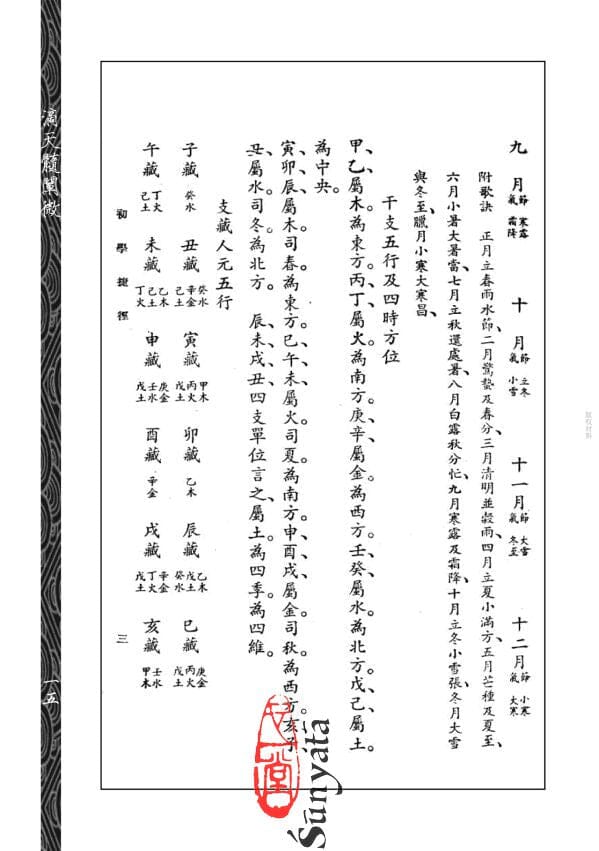 九月 節 寒露 氣 霜降 十月 節 立冬 氣 小雪 十一月 節 大雪 氣 冬至 十二月 節 小寒 氣 大寒
附歌訣 正月立春雨水節、二月驚蟄及春分、三月清明並穀雨、四月立夏小滿方、五月芒種及夏至、
六月小暑大暑當、七月立秋還處暑、八月白露秋分忙、九月寒露及霜降、十月立冬小雪張、冬月大雪
與冬至、臘月小寒大寒昌、
干支五行及四時方位
甲、乙、屬木。為東方。丙、丁、屬火。為南方。庚、辛、屬金。為西方。壬、癸、屬水。為北方。戊、己、屬土。
為中央。
寅、卯、辰、屬木。司春。為東方。巳、午、未、屬火。司夏。為南方。申、酉、戌、屬金。司秋。為西方。亥、子、
丑、屬水。司冬。為北方。 辰、未、戌、丑、四支單位言之、屬土。為四季。為四維。
支藏人元五行
子藏 癸水 丑藏 癸水 辛金 己土 寅藏 甲木 丙火 戊土 卯藏 乙木 辰藏 乙木 戊土 癸水 巳藏 庚金 丙火 戊土
午藏 丁火 己土 未藏 乙木 己土 丁火 申藏 庚金 壬水 戊土 酉藏 辛金 戌藏 辛金 丁火 戊土 亥藏 壬水 甲木
初學捷徑 三
滴天髓闡微 一五
Śūnyatā